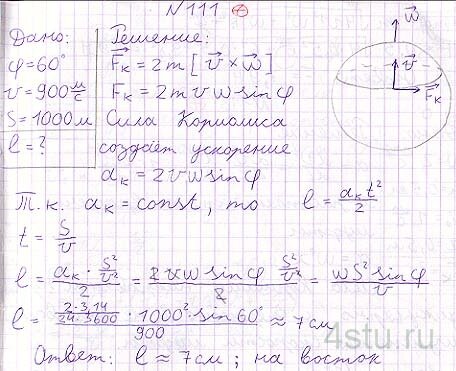 N 111 +
Дано:
φ=60°
v=900 м/с
S=1000м
l=?
Решение:
F⃗к = 2m [v⃗ × w⃗]
Fк = 2m v w sin φ
Сила Кориолиса
создаёт ускорение
aк = 2vw sin φ
w⃗
v⃗
F⃗к
Т.к. aк = const, то l = aк t²/2
t = S/v
l = (aк · S²/v²)/2 = (2vw sin φ S²/v²)/2 = wS² sin φ/v
l = ((2·3,14)/(24·3600) · 1000² · sin 60°)/900 ≈ 7 см
4stu.ru
Ответ: l ≈ 7 см ; на восток